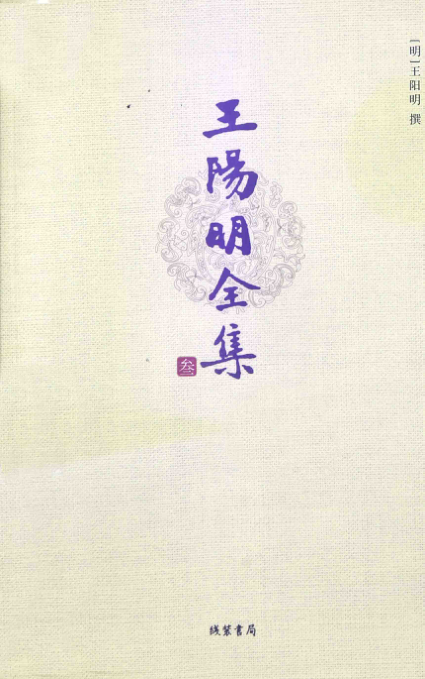 [明]王阳明 撰
王陽明全集
叁
线装书局